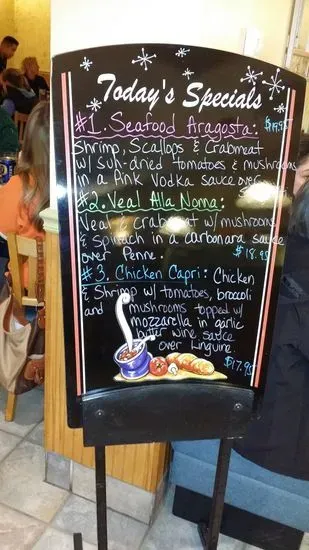 Today's Specials
#1. Seafood Aragosta:
Shrimp, Scallops & Crabmeat
w/ sun-dried tomatoes & mushrooms
in a Pink Vodka sauce over
#2. Veal Alla Nonna:
Veal & crabmeat w/ mushrooms
& Spinach in a carbonara sauce
over Penne. $18.95
#3. Chicken Capri: Chicken
& Shrimp w/ tomatoes, brocoli
and mushrooms topped w/
mozzarella in garlic
butter wine sauce
over Linguine.
$17.95